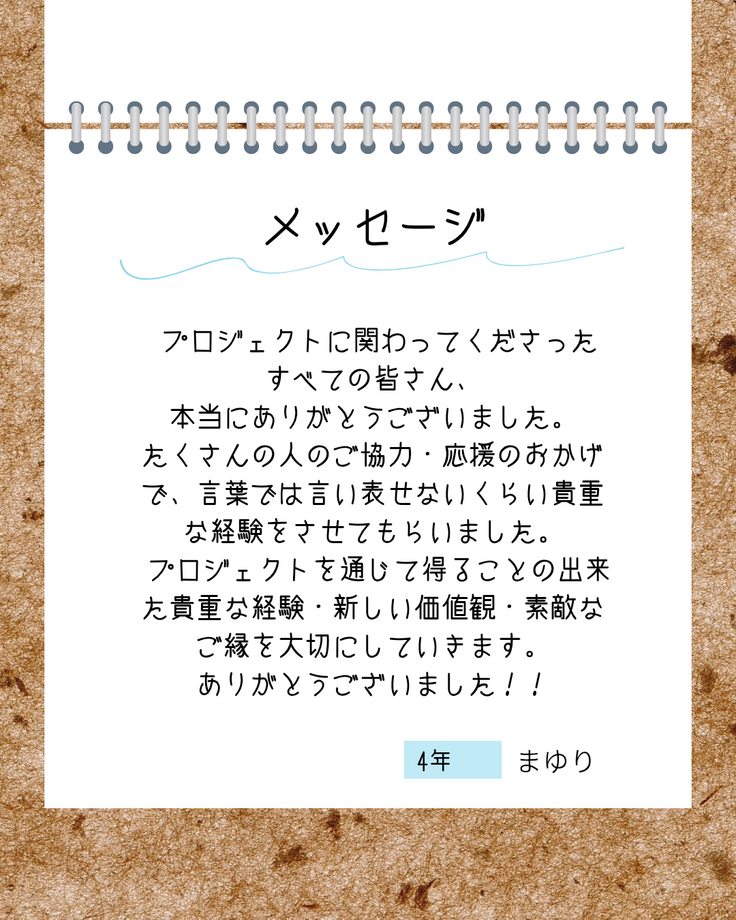 メッセージ
プロジェクトに関わってくださった
すべての皆さん、
本当にありがとうございました。
たくさんの人のご協力・応援のおかげ
で、言葉では言い表せないくらい貴重
な経験をさせてもらいました。
プロジェクトを通じて得ることの出来
た貴重な経験・新しい価値観・素敵な
ご縁を大切にしていきます。
ありがとうございました！！
4年 まゆり